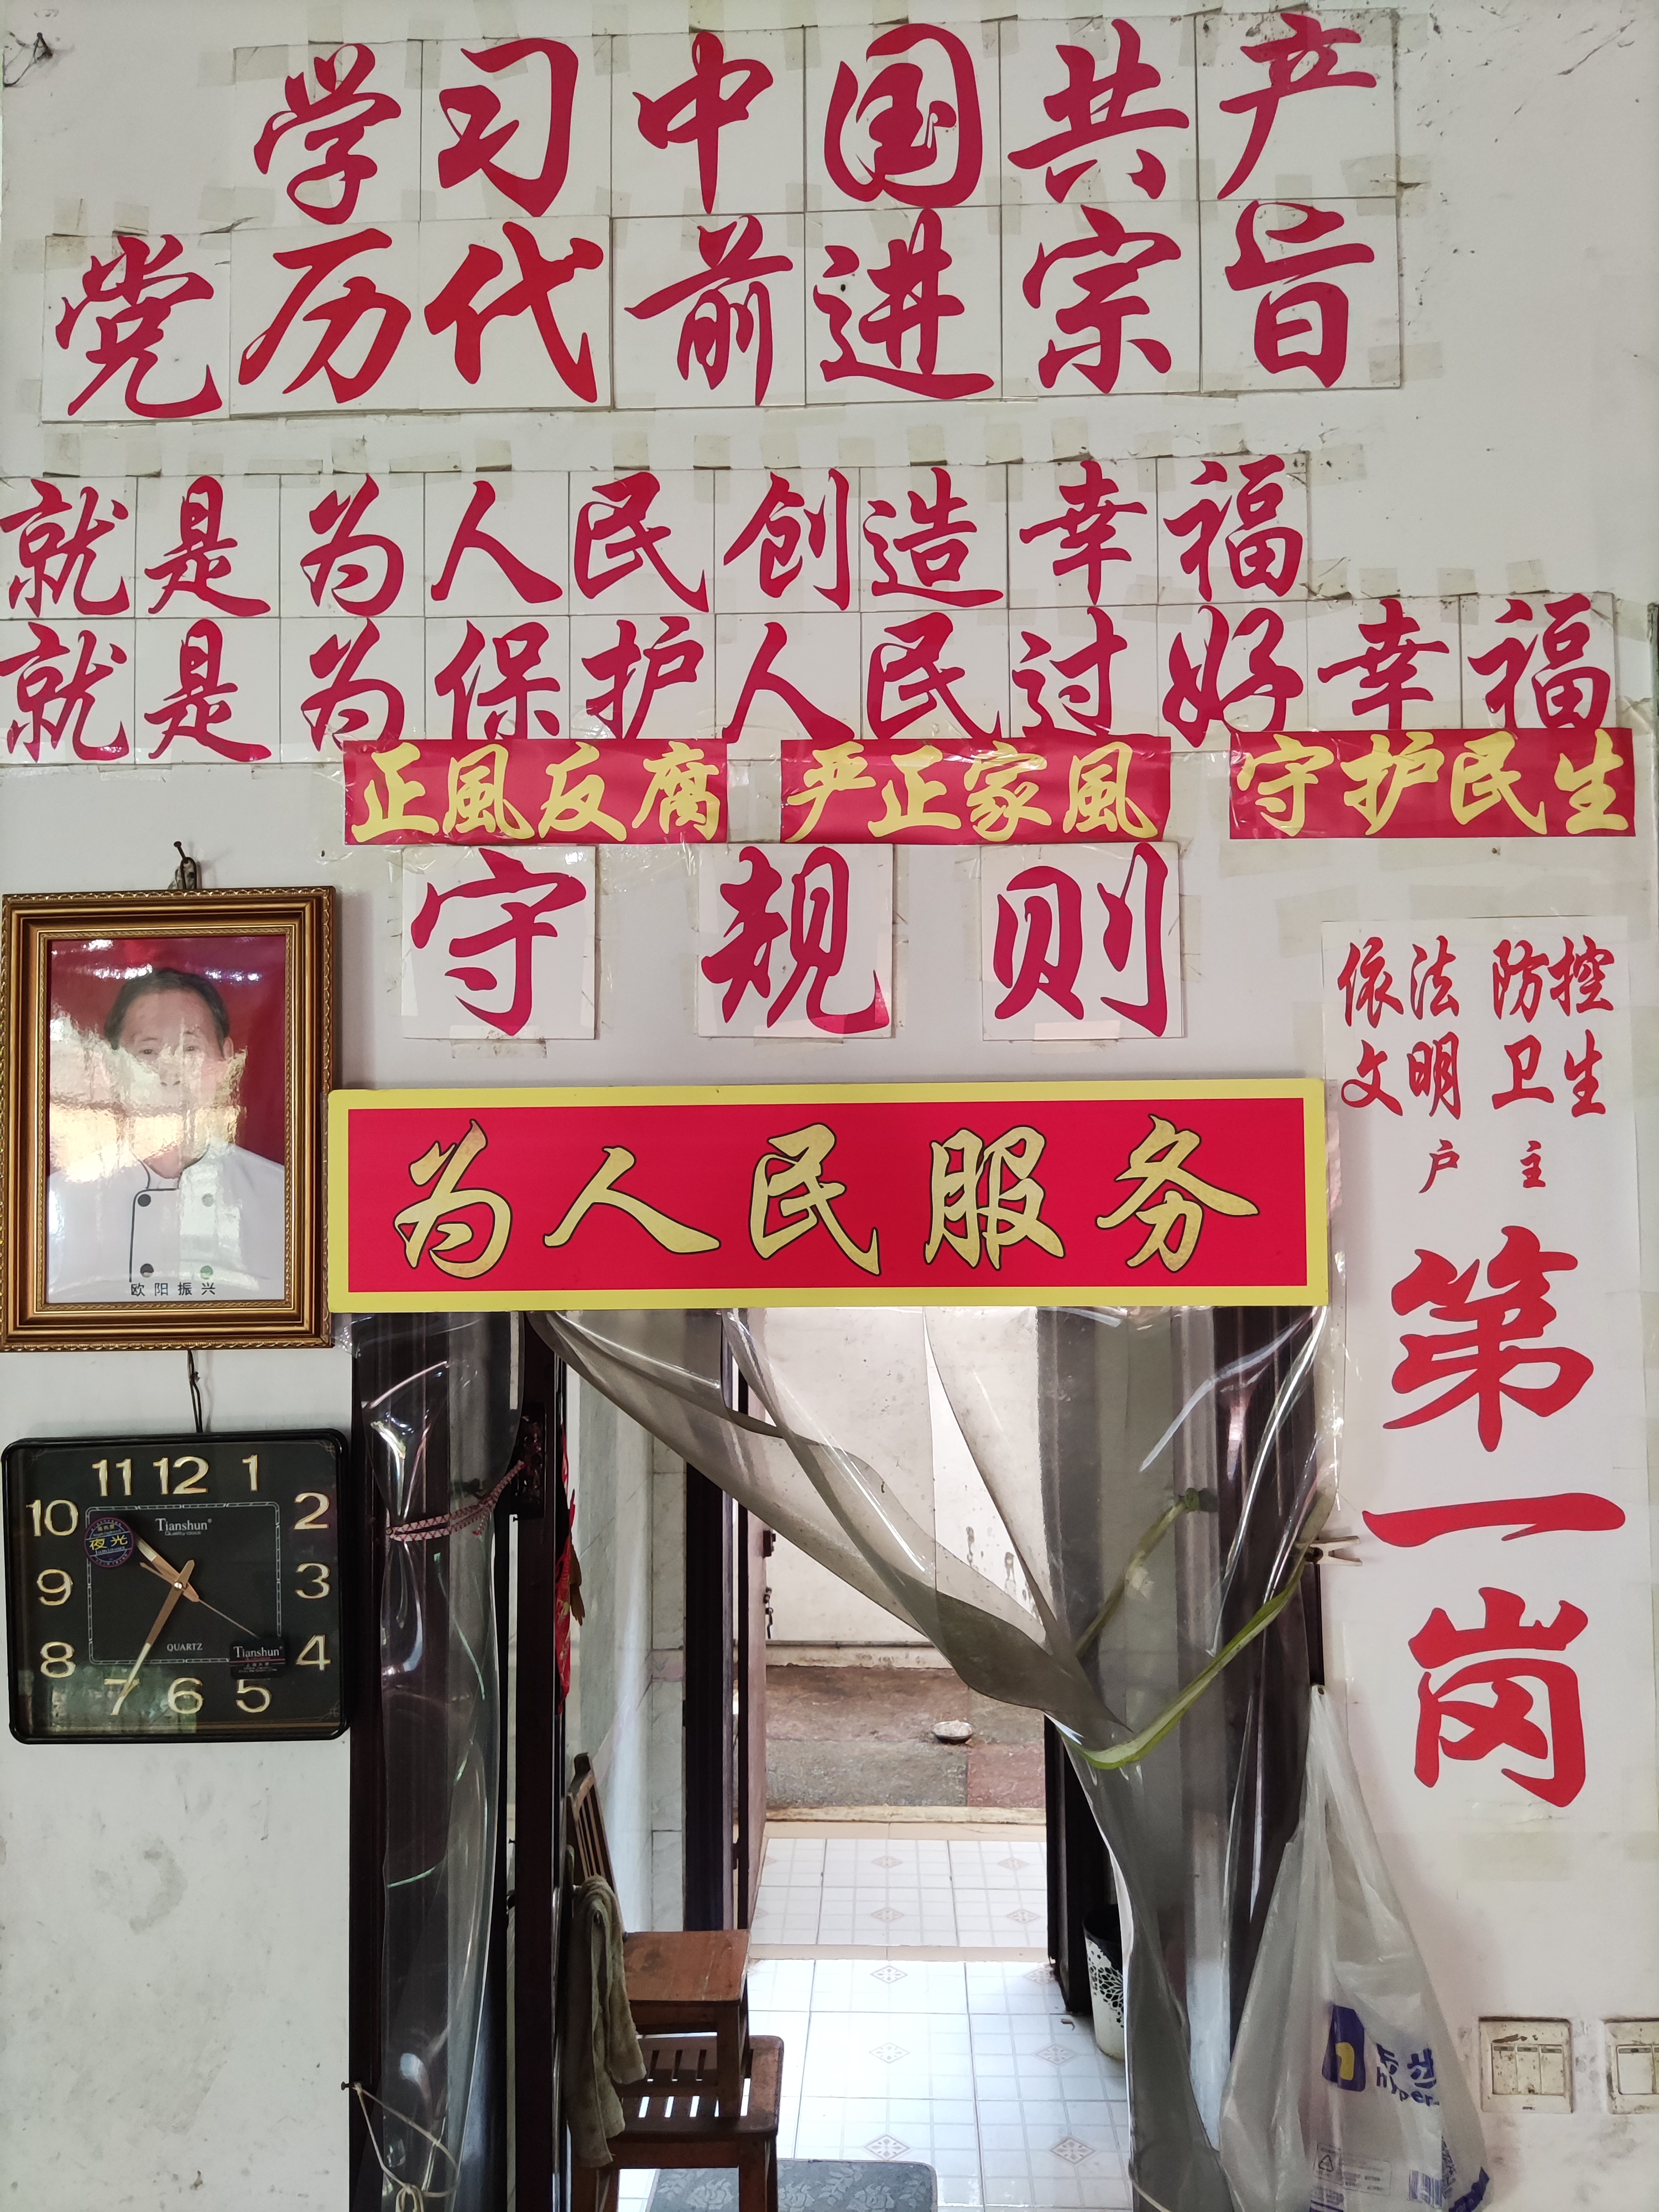 学习中国共产
党历代前进宗旨
就是为人民创造幸福
就是为保护人民过好幸福
正風反腐 严正家風 守护民生
守规则
依法 防控
文明 卫生
户 主
第
一
岗
为人民服务
欧阳振兴
11 12 1
10 2
Tianshun
夜光
9 3
8 4
QUARTZ
Tianshun
7 6 5